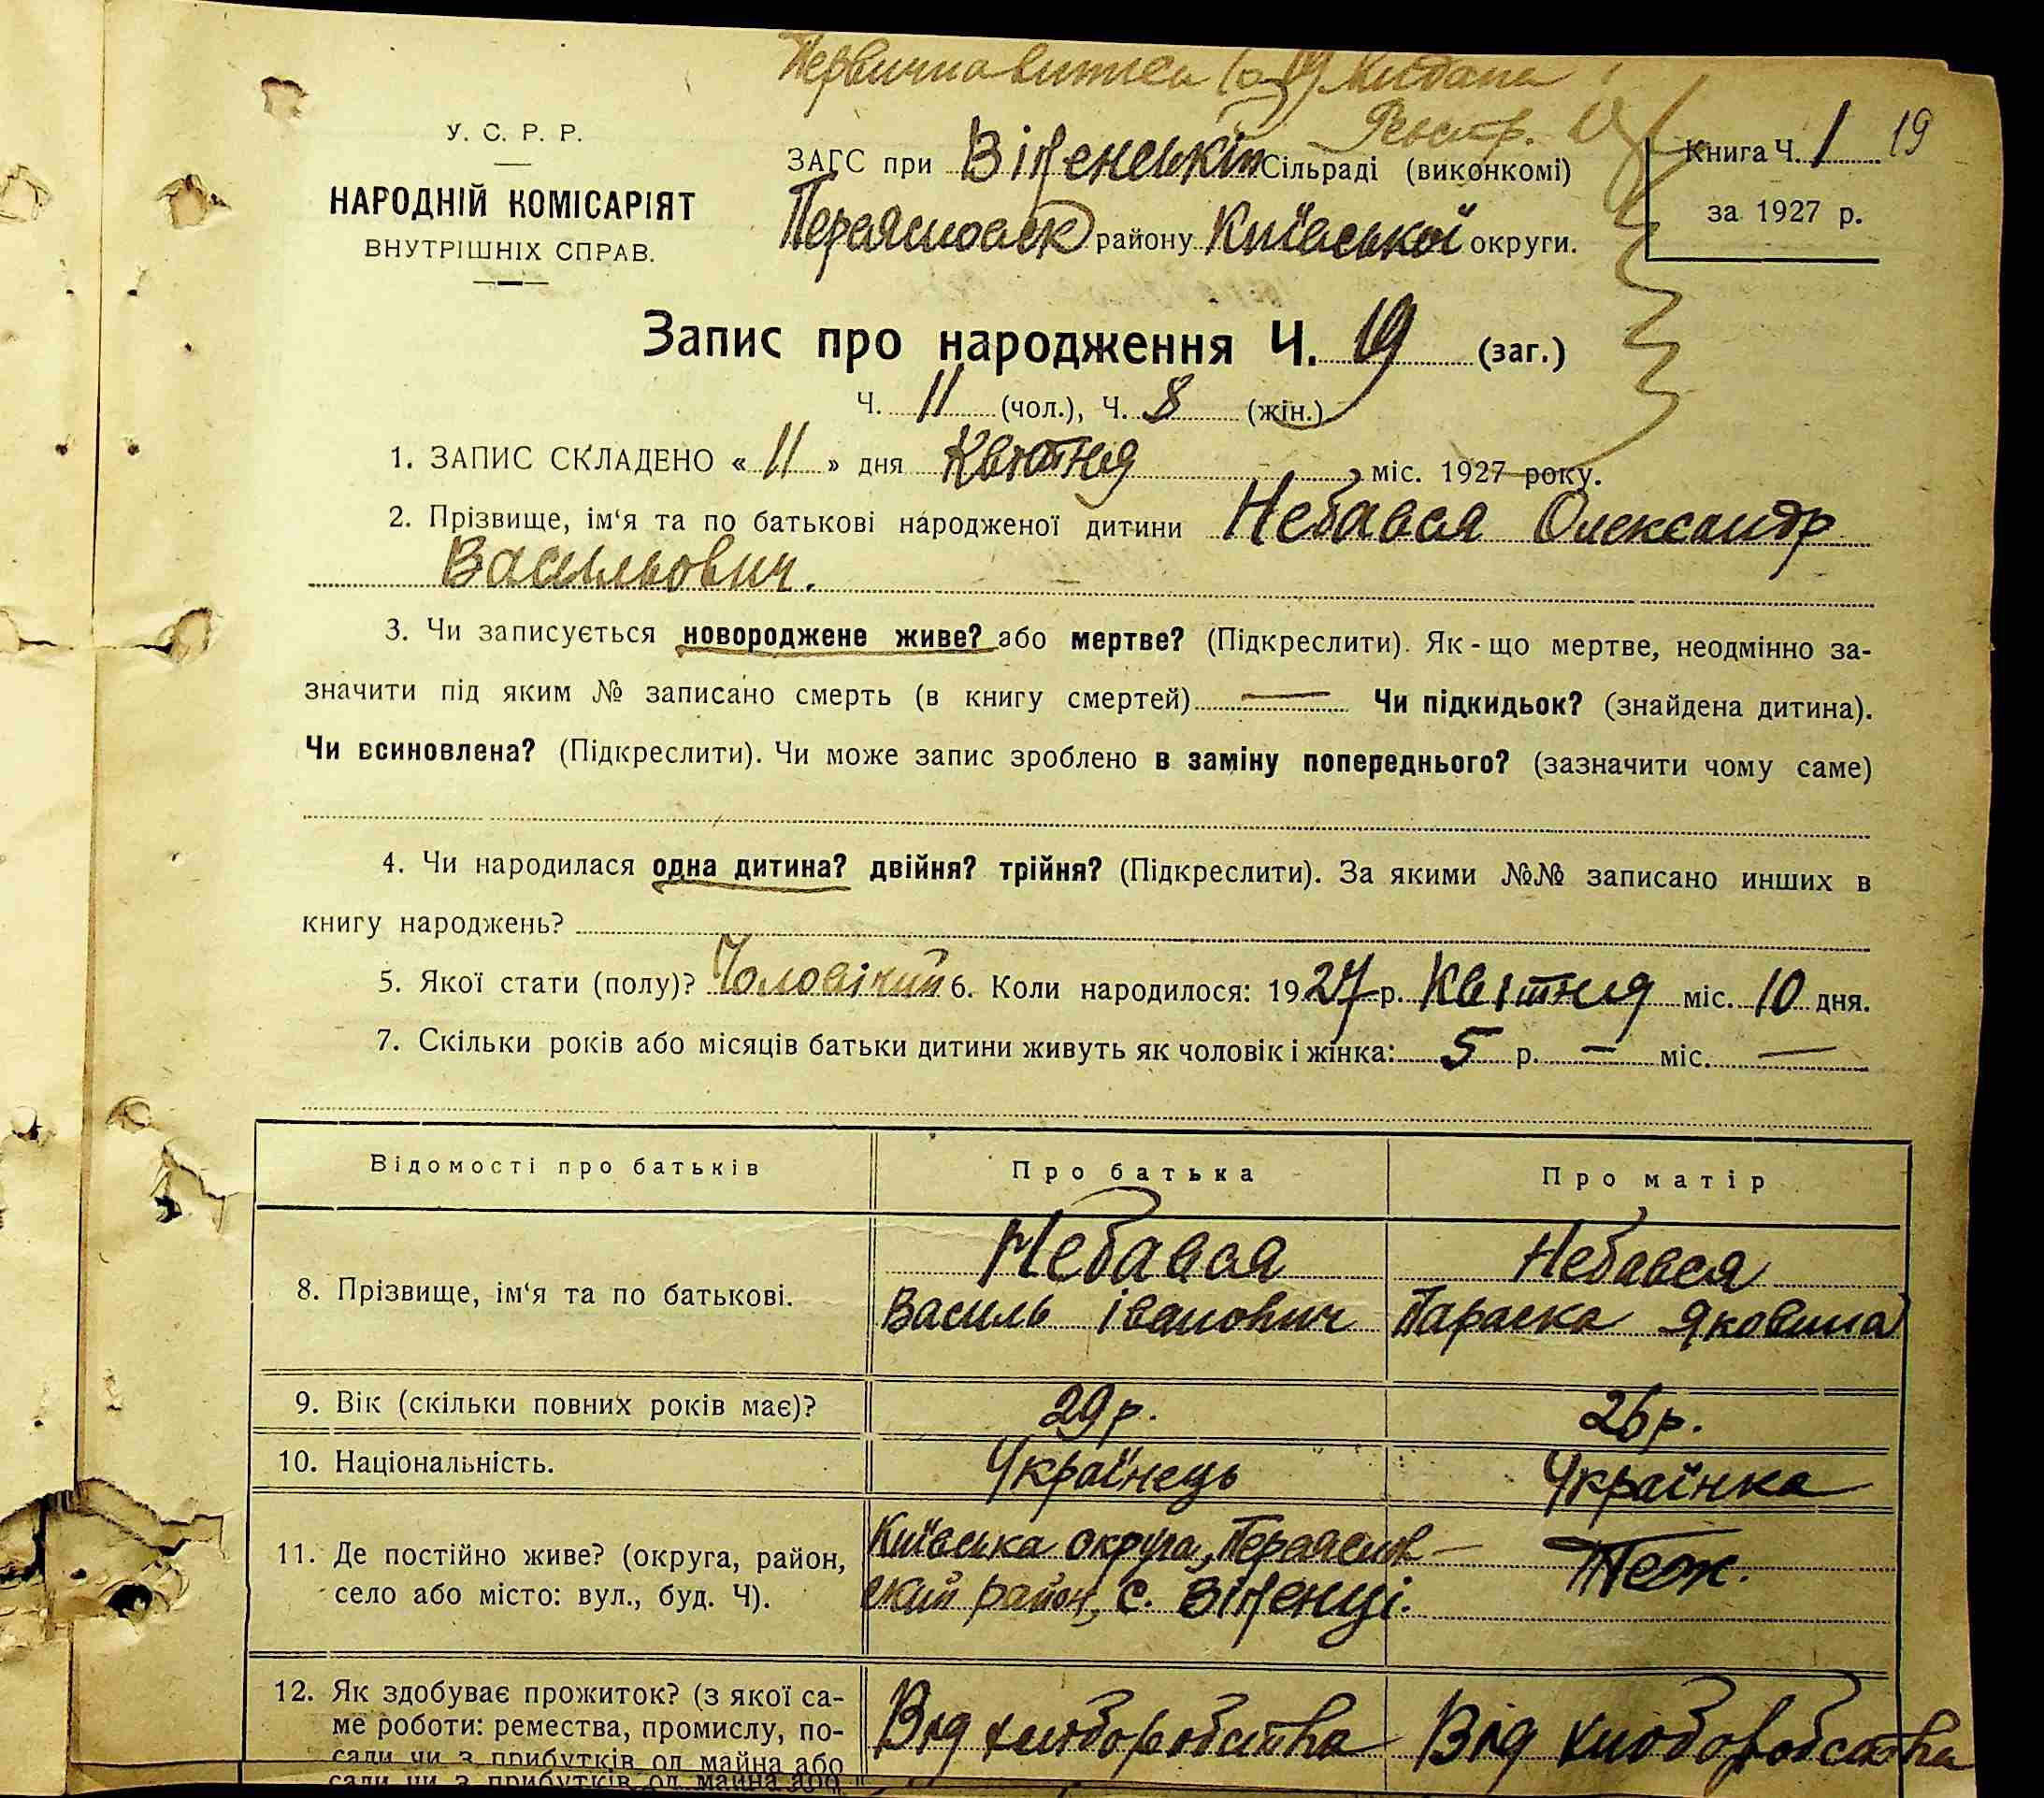 Первична виписка
У. С. Р. Р.
НАРОДНІЙ КОМІСАРІЯТ
ВНУТРІШНІХ СПРАВ.
ЗАГС при Віненській Сільраді (виконкомі)
Переяславск району Київської округи.
Книга Ч. 1 19
за 1927 р.
Запис про народження Ч. 19 (заг.)
Ч. 11 (чол.), Ч. 8 (жін.)
1. ЗАПИС СКЛАДЕНО « 11 » дня Квітня міс. 1927 року.
2. Прізвище, ім‘я та по батькові народженої дитини Небався Олександр
Васильович.
3. Чи записується новороджене живе? або мертве? (Підкреслити). Як - що мертве, неодмінно за-
значити під яким № записано смерть (в книгу смертей) — Чи підкидьок? (знайдена дитина).
Чи всиновлена? (Підкреслити). Чи може запис зроблено в заміну попереднього? (зазначити чому саме)
4. Чи народилася одна дитина? двійня? трійня? (Підкреслити). За якими №№ записано инших в
книгу народжень?
5. Якої стати (полу)? Чоловічий 6. Коли народилося: 1927 р. Квітня міс. 10 дня.
7. Скільки років або місяців батьки дитини живуть як чоловік і жінка: 5 р. — міс. —
Відомості про батьків Про батька Про матір
8. Прізвище, ім‘я та по батькові.
Небався
Василь Іванович
Небався
Параска Яковина
9. Вік (скільки повних років має)? 29 р. 26 р.
10. Національність. Українець Українка
11. Де постійно живе? (округа, район,
село або місто: вул., буд. Ч).
Київська округа, Переяслов-
ский район, с. Віненці.
Теж.
12. Як здобуває прожиток? (з якої са-
ме роботи: ремества, промислу, по-
сади чи з прибутків од майна або
Від хліборобства
Від хліборобства